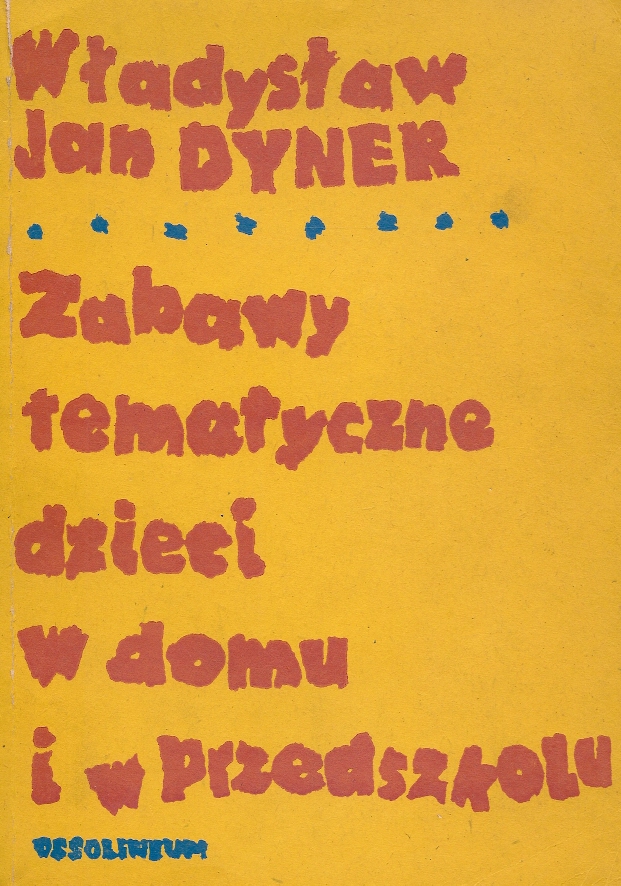 Władysław
Jan DYNER
Zabawy
tematyczne
dzieci
w domu
i w przedszkolu
OSSOLINEUM